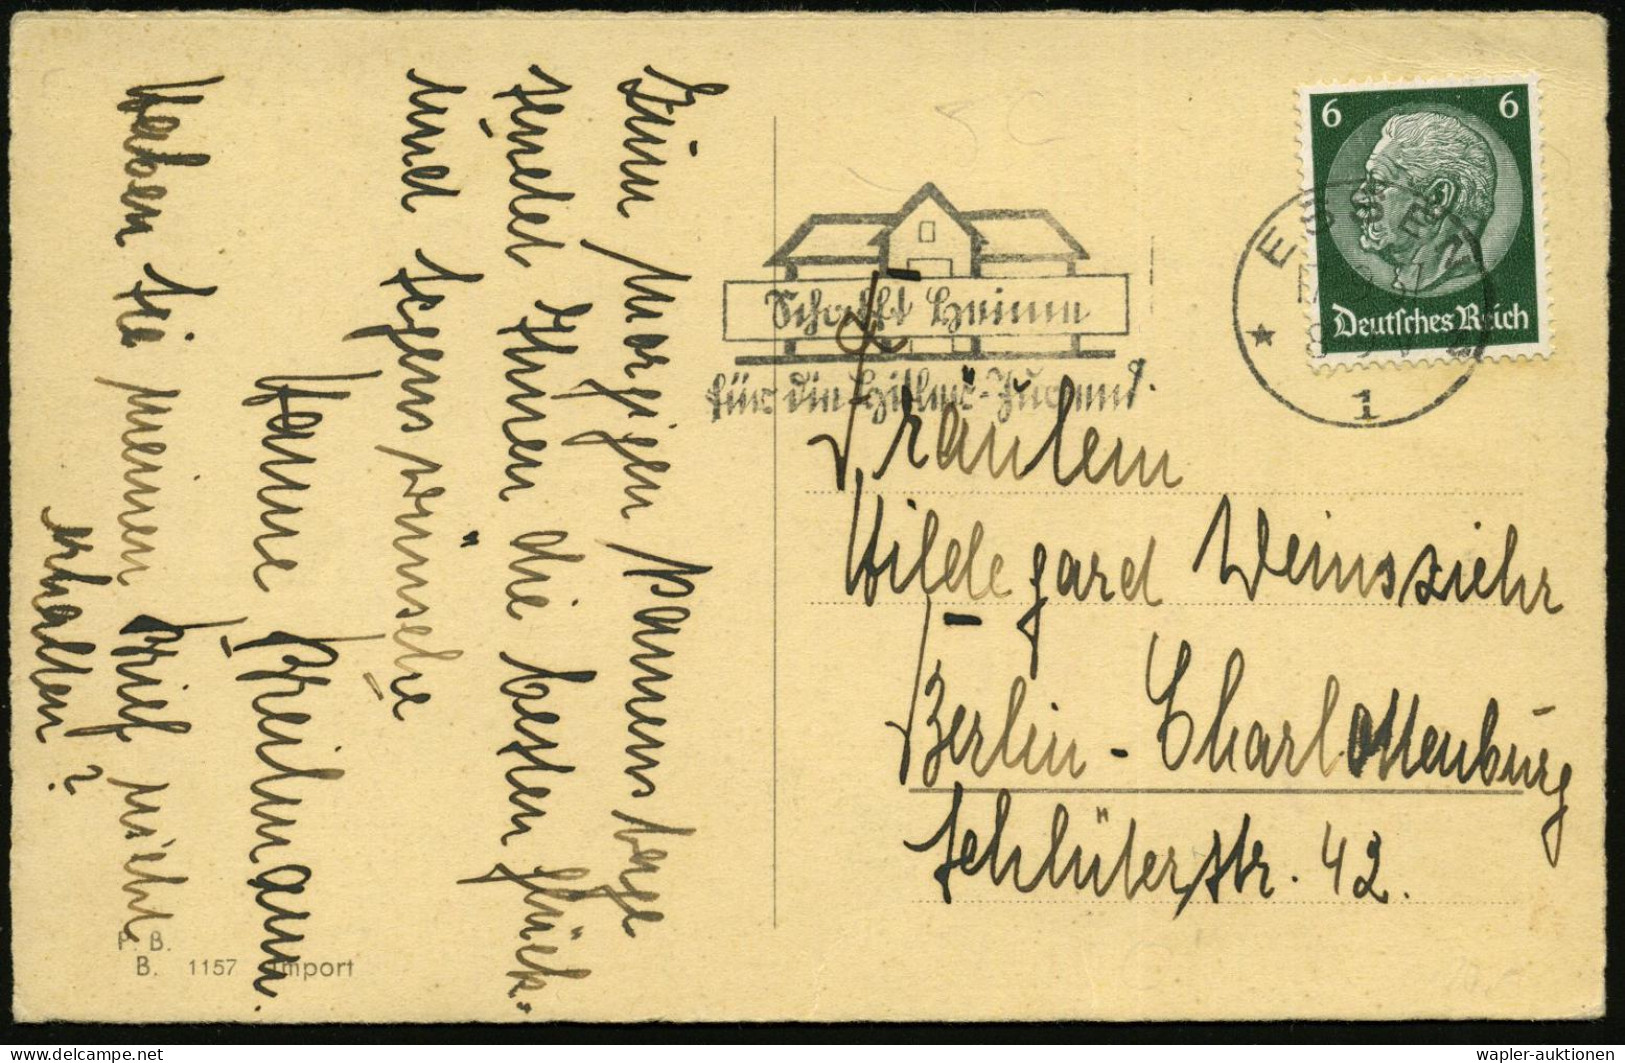 Zum morgigen Namenstage
sendet Ihnen die besten Glück-
und Segenswünsche
Hanne Breilmann.
Haben Sie meinen Brief nicht
erhalten?
P. B.
B. 1157 Import
Schafft Heime
für die Hitler-Jugend.
6 6
Deutsches Reich
ESSEN
* 1
Fräulein
Hildegard Weinsziehr
Berlin-Charlottenburg
Schlüterstr. 42.
wapler-auktionen
delcampe.net